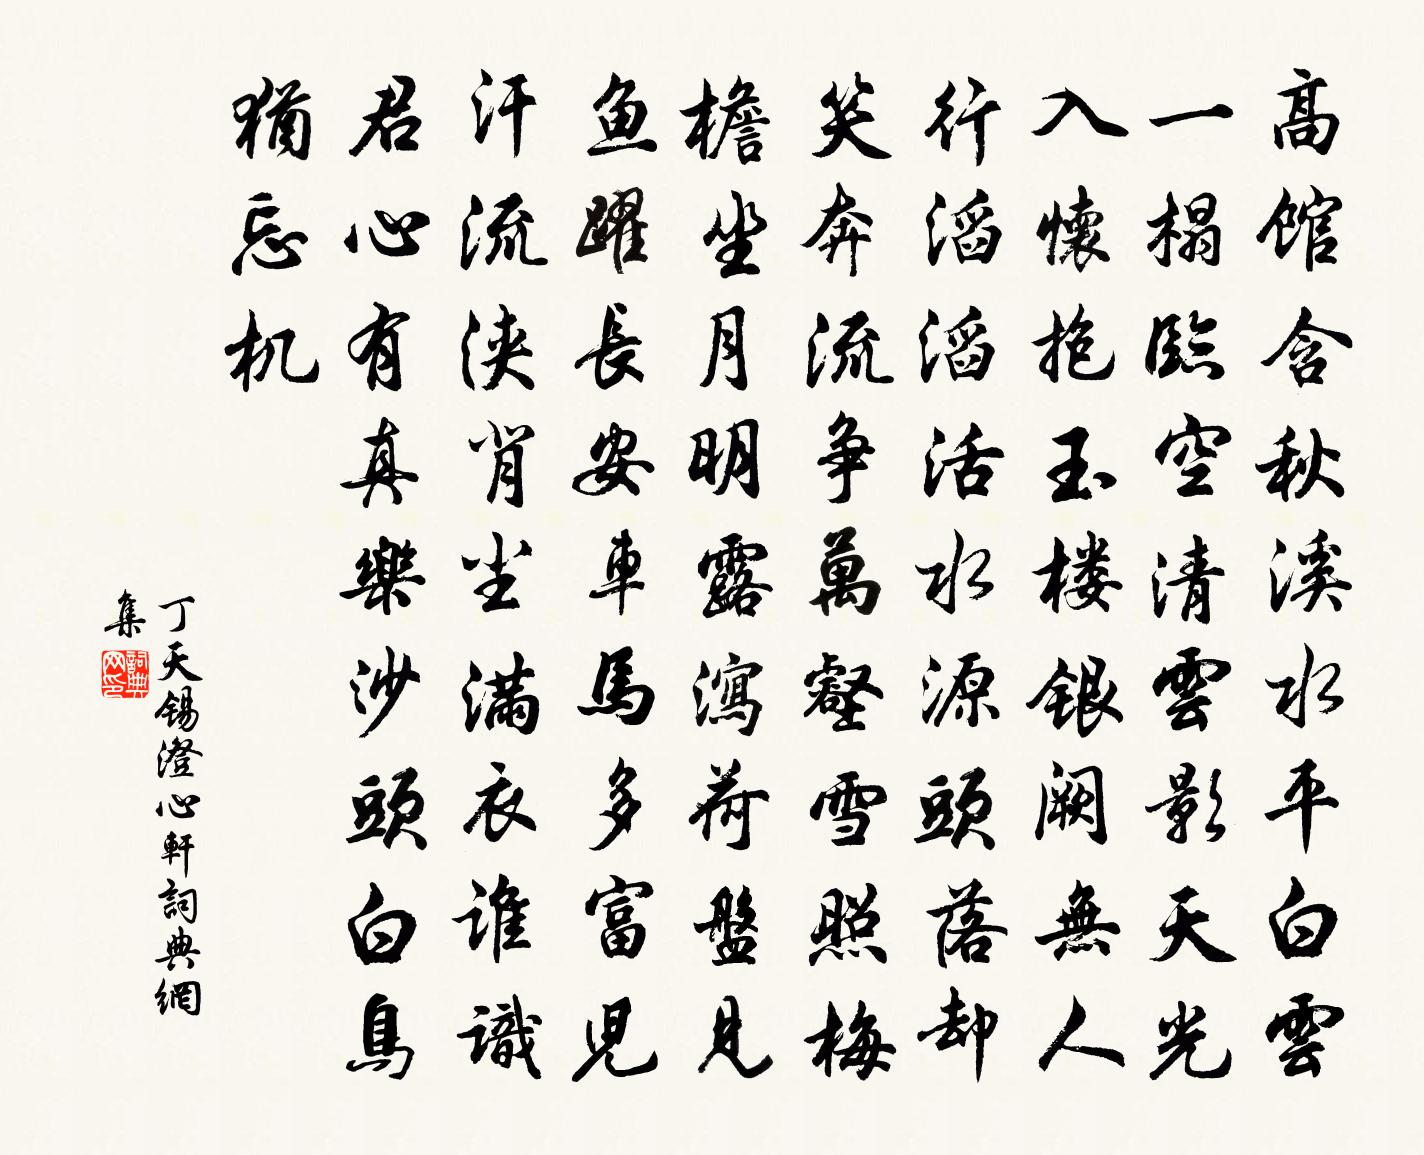 高館含秋溪水平白雲
一榻臨空清雲影天光
入懷抱玉楼銀闕無人
行滔滔活水源頭落却
笑奔流争萬壑雪照梅
檐坐月明露瀉荷盤見
魚躍長安車馬多富兒
汗流浹背尘满衣誰識
君心有真樂沙頭白鳥
猶忘机
丁天锡澄心軒詞典網
集
詞典网印